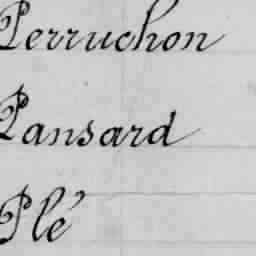 Perruchon
Pansard
Plé